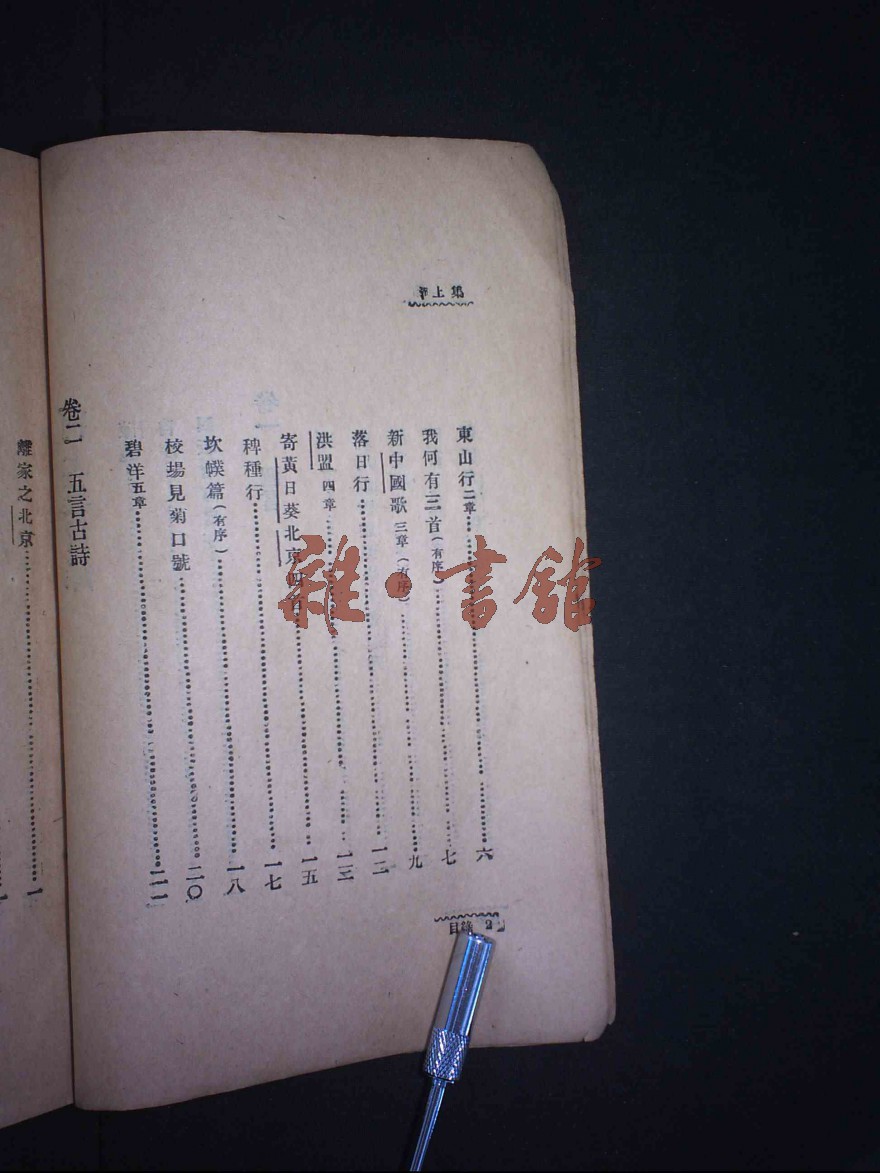 上集
東山行二章……六
我何有三首(有序)……七
新中國歌三章(有序)……九
落日行……一二
洪盟四章……一三
寄黃日葵北京四首……一五
稗種行……一七
坎幞篇(有序)……一八
校場見菊口號……二〇
碧洋五章……二一
卷二 五言古詩
離家之北京……一
目錄 2
雜·書館